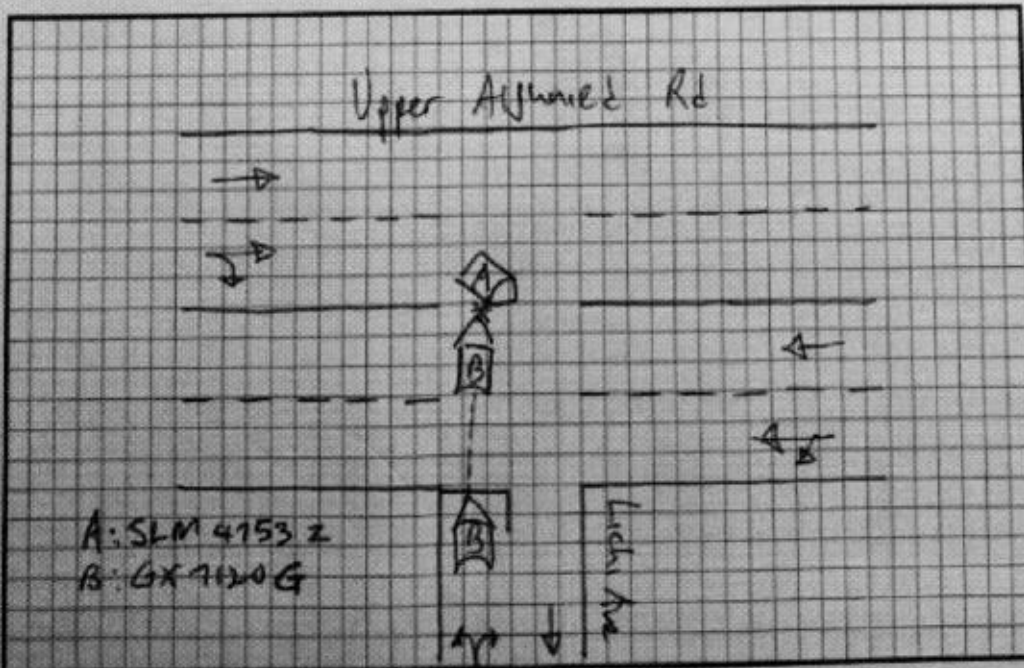 Upper Aljunied Rd
A
B
B
A: SLM 4753 Z
B: GX 7120 G
Lichi Ave